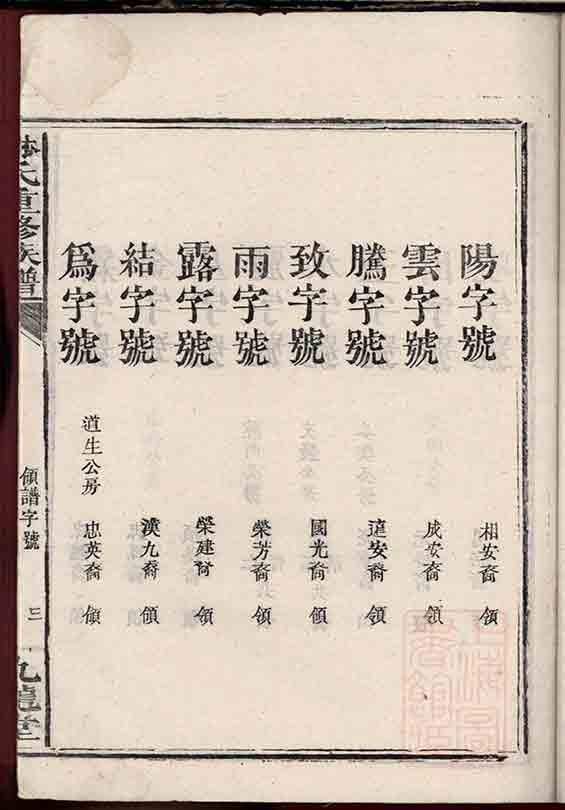 陽字號 相安裔 領
雲字號 成安裔 領
騰字號 達安裔 領
致字號 國光裔 領
雨字號 榮芳裔 領
露字號 榮建裔 領
結字號 漢九裔 領
為字號 道生公房 忠英裔 領
氏重修族譜 領譜字號 三 九龍堂
上海圖書館藏